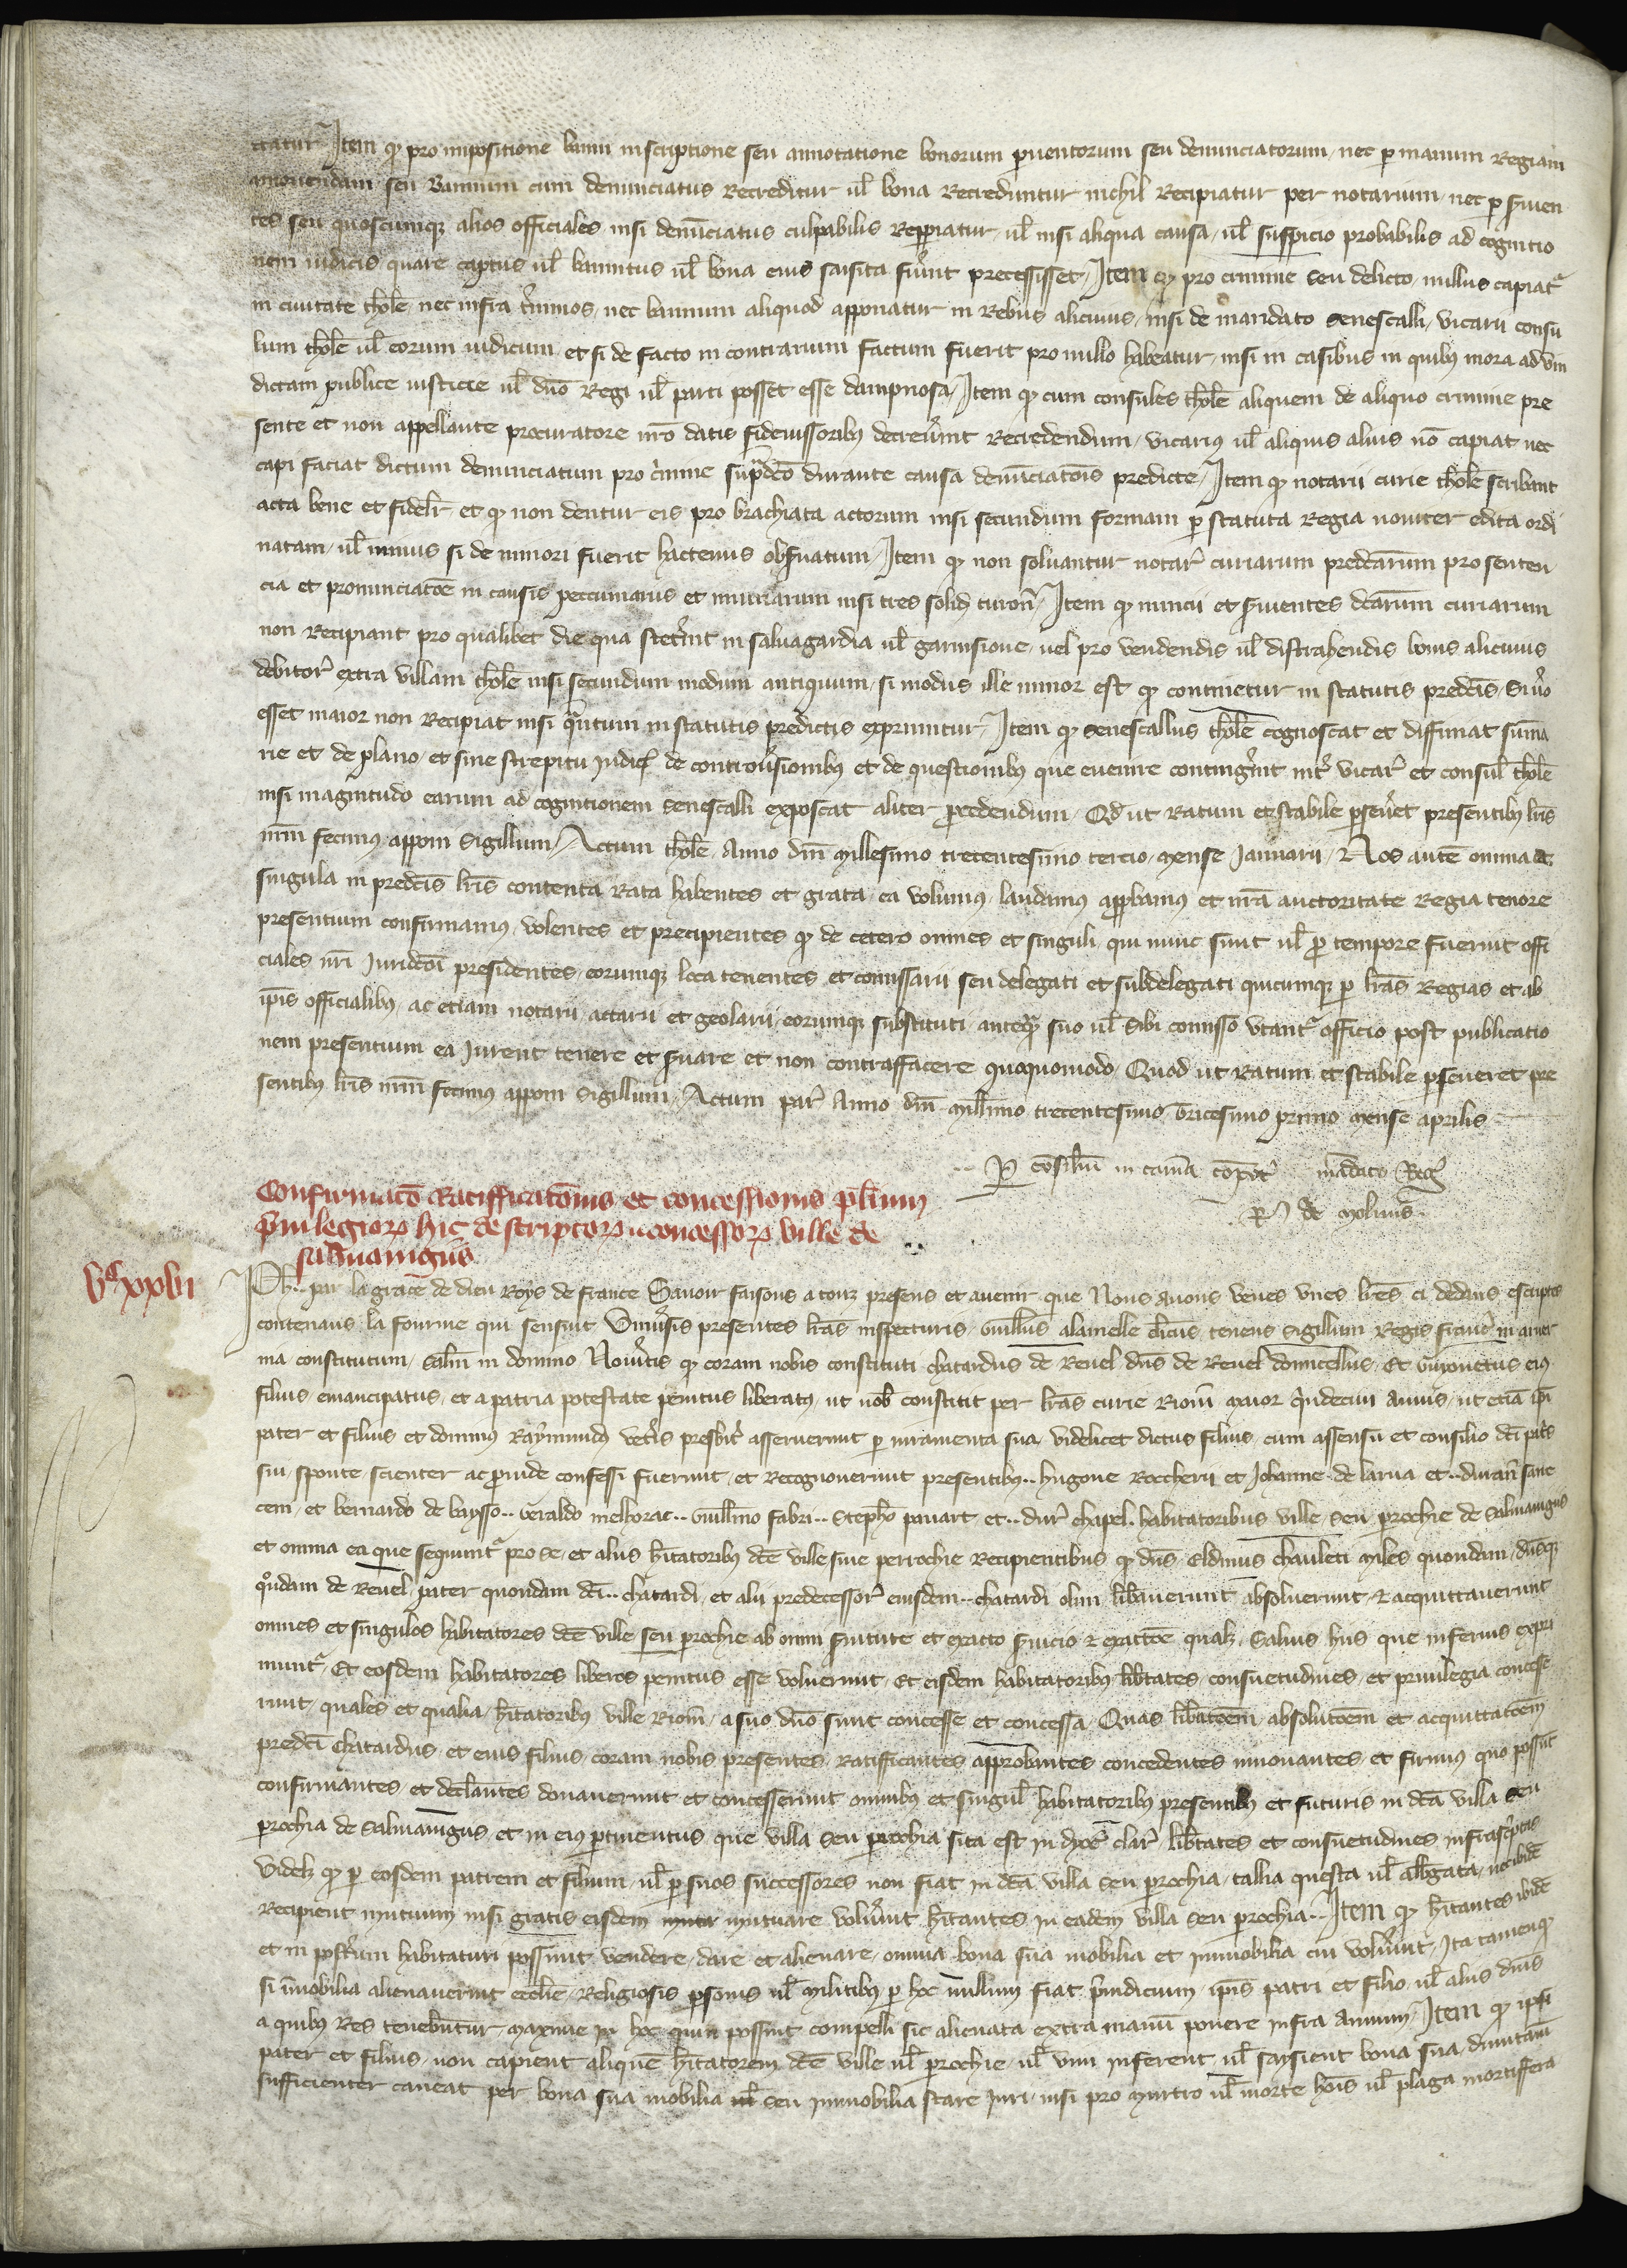 ctatur Item qd pro impositione banni inscriptione seu annotatione bonorum preventorum seu denunciatorum nec per manum Regiam
amovendam seu Bannum cum denunciatus Recreditur ul bona Recreduntur nichil Recipiatur per notarium nec per servien
tes seu quoscumque alios officiales nisi denunciatus culpabilis Repperiatur ul nisi aliqua causa ul suspicio probabilis ad cognitio
nem iudicis quare captus ul bannitus ul bona eius saisita fuerint precessisset Item qd pro crimine seu delicto nullus capiatr
in civitate tholē nec infra terminos nec bannum aliquod apponatur in Rebus alicuius nisi de mandato Senescalli vicarii consu
lum tholē ul eorum iudicum et si de facto in contrarium factum fuerit pro nullo habeatur nisi in casibus in quibus mora ad vin
dictam publice iusticie ul dno Regi ul parti posset esse dampnosa Item qd cum consules tholē aliquem de aliquo crimine pre
sente et non appellante procuratore nro datis fideiussoribus decreverint Recredendum vicarius ul aliquis alius nō capiat nec
capi faciat dictum denunciatum pro crimine supradco durante causa denunciatōis predicte Item qd notarii curie tholē scribant
acta bene et fidelr et qd non dentur eis pro brachiata actorum nisi secundum formam per statuta Regia noviter edita ordi
natam ul minus si de minori fuerit hactenus observatum Item qd non solvantur notar curiarum predcarum pro senten
cia et pronunciatōe in causis peccuniariis et iniuriarum nisi tres solid turon Item qd nuncii et servientes dcarum curiarum
non Recipiant pro qualibet die qua steterint in salvagardia ul garnisione vel pro vendendis ul distrahendis bonis alicuius
debitor extra villam tholē nisi secundum modum antiquum si modus ille minor est qd continetur in statutis predcis Si vero
esset maior non Recipiat nisi quantum in statutis predictis exprimitur Item qd Senescallus tholē cognoscat et diffiniat summa
rie et de plano et sine strepitu iudicii de controversionibus et de questionibus que evenire contingerint inter vicar et consul tholē
nisi magnitudo earum ad cognitionem Senescalli exposcat aliter procedendum Qd ut Ratum et stabile perseveret presentibus lris
nrm fecimus apponi Sigillum Actum tholē Anno dni Millesimo trecentesimo tercio Mense Januarii Nos autē omnia et
singula in predcis lris contenta Rata habentes et grata ea volumus laudamus approbamus et nra auctoritate Regia tenore
presentium confirmamus volentes et precipientes qd de cetero omnes et singuli qui nunc sunt ul pro tempore fuerint offi
ciales nri Juridcōi presidentes eorumque loca tenentes et comissarii seu delegati et subdelegati quicumque per lras Regias et ab
ipis officialibus ac etiam notarii actarii et geolarii eorumque substituti anteqm suo ul Sibi comisso utantr officio post publicatio
nem presentium ea Jurent tenere et servare et non contraffacere quoquomodo Quod ut Ratum et stabile perseveret pre
sentibus lris nrm fecimus apponi Sigillum Actum par Anno dni Millimo trecentesimo Vicesimo primo Mense aprilis
Per consilium in camā compot mandato Reg
per de Molinis
Confirmacō Ratifficatōnis et concessionis plurium
privilegiorum hic descriptorum concessorum ville de
salvaingiis
Vc xxvii
Ph.. par la grace de dieu Roys de france Savoir faisons a touz presens et avenir que Nous avons veues unes lres ci dedens escriptes
contenans la fourme qui sensuit Universis presentes lras inspecturis Guillus alamelle clicus tenens Sigillum Regis francie in arver
nia constitutum salm in domino Noveritis qd coram nobis constituti chatardus de Revel dns de Revel domicellus Et Guionetus eius
filius emancipatus et a patria potestate penitus liberatus ut nob constitit per lras curie Riom Maior quindecim Annis ut etiā ibi
pater et filius et dominus Raymundus veteris presbitr asseruerunt per iuramenta sua videlicet dictus filius cum assensu et consilio dci patris
sui sponte scienter ac provide confessi fuerunt et Recognoverunt presentibus.. hugone Roccherii et Johanne de larua et.. durant sane
cem et bernardo de baysso.. Geraldo melhorac.. Guillmo fabri.. Stepho pavart et.. dur chapel. habitatoribus ville Seu parochie de Salvaingiis
et omnia ea que sequuntr pro se et aliis hitatoribus dce ville sive perrochie Recipientibus qd dns Eldinus chauleti Miles quondam dnsque
qndam de Revel pater quondam dci.. chatardi et alii predecessor eiusdem.. chatardi olim liberaverunt absolverunt et acquittaverunt
omnes et singulos habitatores dce ville seu parochie ab omni servitute et exacto servicio et exactōe qualz Salvis hiis que inferius expri
muntr Et eosdem habitatores liberos penitus esse voluerunt Et eisdem habitatoribus libertates consuetudines et privilegia concesse
runt quales et qualia hitatoribus ville Riom a suo dno sunt concesse et concessa Quas liberatōem absolutōem et acquittatōem
predcti chatardus et eius filius coram nobis presentes Ratifficantes approbantes concedentes innovantes et firmius quo possunt
confirmantes et declarantes donaverunt et concesserunt omnibus et singul habitatoribus presentibus et futuris in dcā villa seu
parochia de Salvaingiis et in eius pertinentiis que villa seu parochia sita est in dyoc clar libertates et consuetudines infrascriptas
Videlz qd per eosdem patrem et filium ul per suos successores non fiat in dcā villa seu parochia tallia questa ul albergata nec ibidē
Recipient mutuum nisi gratis eisdem mutuare voluerint hitantes in eadem villa seu parochia.. Item qd hitantes ibidē
et in posterum habitaturi possint vendere dare et alienare omnia bona sua mobilia et immobilia cui voluerint Ita tamen qd
si immobilia alienaverint ecclie Religiosis personis ul Militibus per hoc nullum fiat preiudicium ipis patri et filio ul aliis dnis
a quibus Res tenebuntur Maxime in hoc quin possint compelli sic alienata extra manū ponere infra Annum Item qd ipsi
pater et filius non capient aliquē hitatorem dce ville ul parochie ul vim inferent ul saysient bona sua dumtam
sufficienter caveat per bona sua mobilia seu immobilia stare Juri nisi pro Murtro ul morte hois ul plaga mortiffera